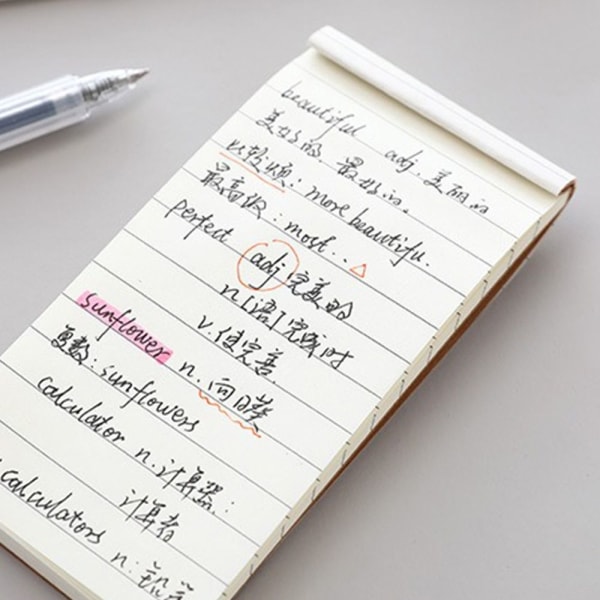 beautiful adj. 美丽的
美好的 最好的.
比较级: more beautiful.
最高级: most...
perfect adj 完美的
n [语] 完成时
v. 使完善.
sunflower n. 向日葵
复数: sunflowers
calculator n. 计算器:
计算者
calculators n: